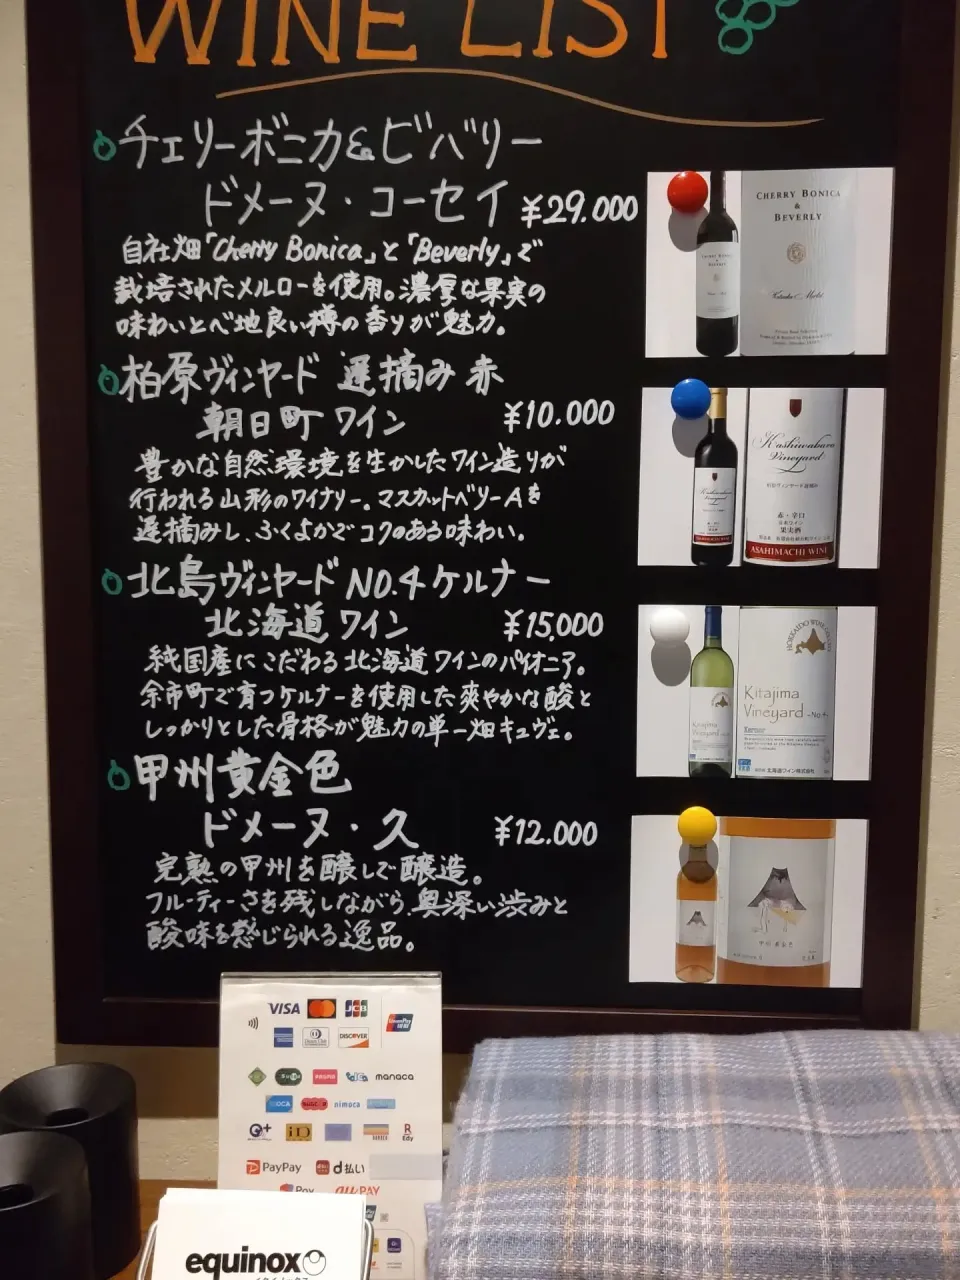 WINE LIST
チェリーボニカ&ビバリー
ドメーヌ・コーセイ ¥29.000
自社畑「Cherry Bonica」と「Beverly」で
栽培されたメルローを使用。濃厚な果実の
味わいとべ地良い樽の香りが魅力。
柏原ヴィンヤード 遅摘み 赤
朝日町ワイン ¥10.000
豊かな自然環境を生かしたワイン造りが
行われる山形のワイナリー。マスカットベリーAを
遅摘みし、ふくよかでコクのある味わい。
北島ヴィンヤード NO.4 ケルナー
北海道ワイン ¥15,000
純国産にこだわる北海道ワインのパイオニア。
余市町で育つケルナーを使用した爽やかな酸と
しっかりとした骨格が魅力の単一畑キュヴェ。
甲州黄金色
ドメーヌ・久 ¥12.000
完熟の甲州を醸しで醸造。
フルーティーさを残しながら、奥深い渋みと
酸味を感じられる逸品。
CHERRY BONICA
&
BEVERLY
CHERRY BONICA
&
BEVERLY
Kashiwabara
Vineyard
柏原ヴィンヤード遅摘み
赤・辛口
日本ワイン
果実酒
ASAHIMACHI WINE
HOKKAIDO WINE CO., LTD.
Kitajima
Vineyard
Kitajima
Vineyard -No.4-
Kerner
北海道ワイン株式会社
VISA
JCB
UnionPay
Diners Club
DISCOVER
Suica
PASMO
manaca
nimoca
iD
R
Edy
PayPay
d払い
Pay
au PAY
equinox